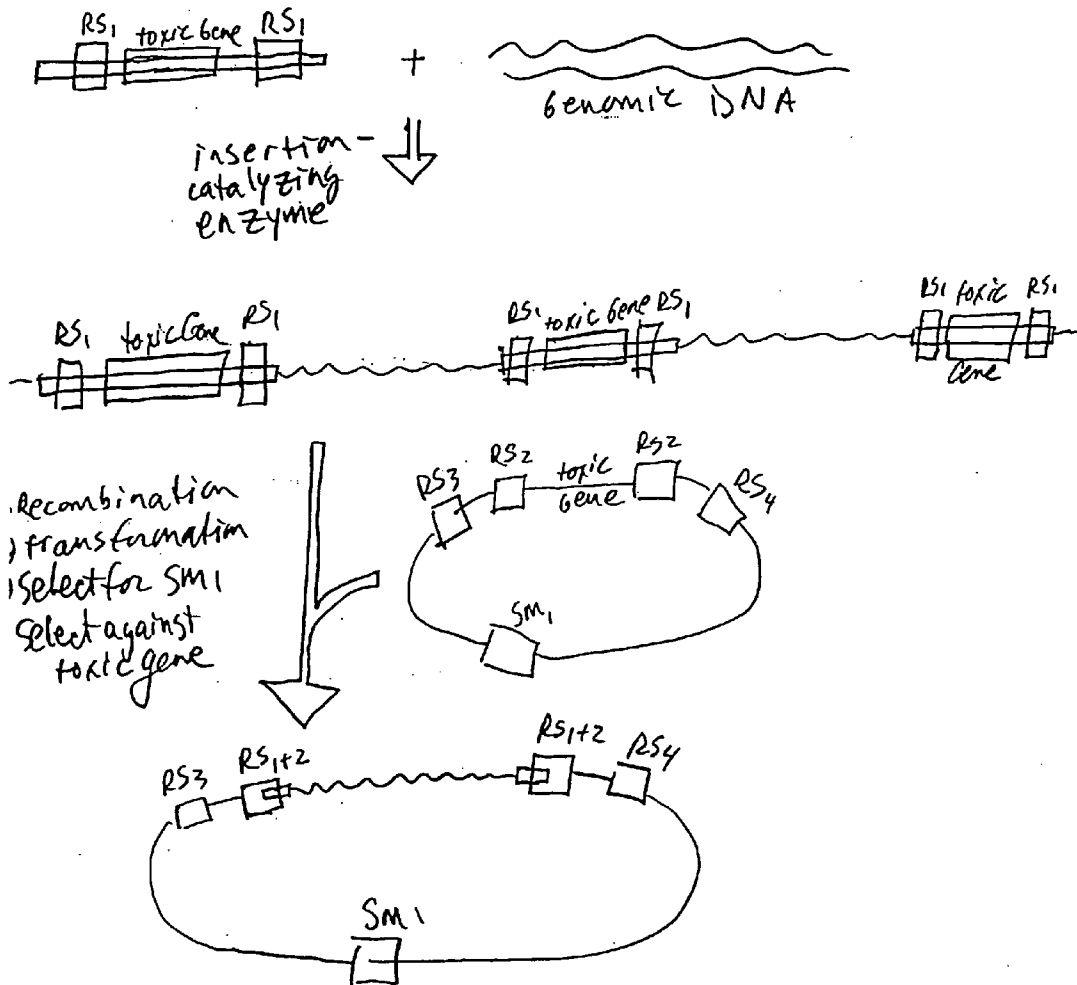 RS1 toxic Gene RS1
+
Genomic DNA
insertion-
catalyzing
enzyme
RS1 toxic Gene RS1
RS1 toxic Gene RS1
RS1 toxic RS1
Gene
Recombination
transformation
select for SM1
select against
toxic gene
RS3 RS2 toxic RS2 RS4
Gene
SM1
RS3 RS1+2 RS1+2 RS4
SM1